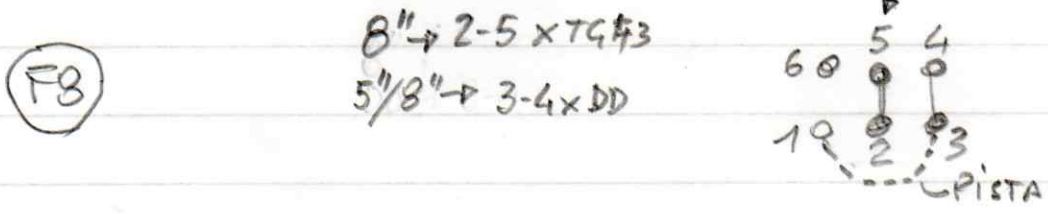 F8
8"→ 2-5 x TG43
5"/8"→ 3-4 x DD
5 4
6
1 2 3
PISTA